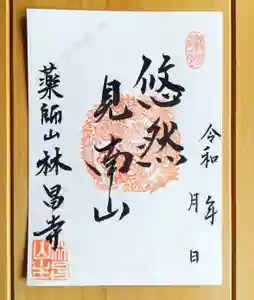 令和　年　月　日
悠然
見南山
薬師山林昌寺